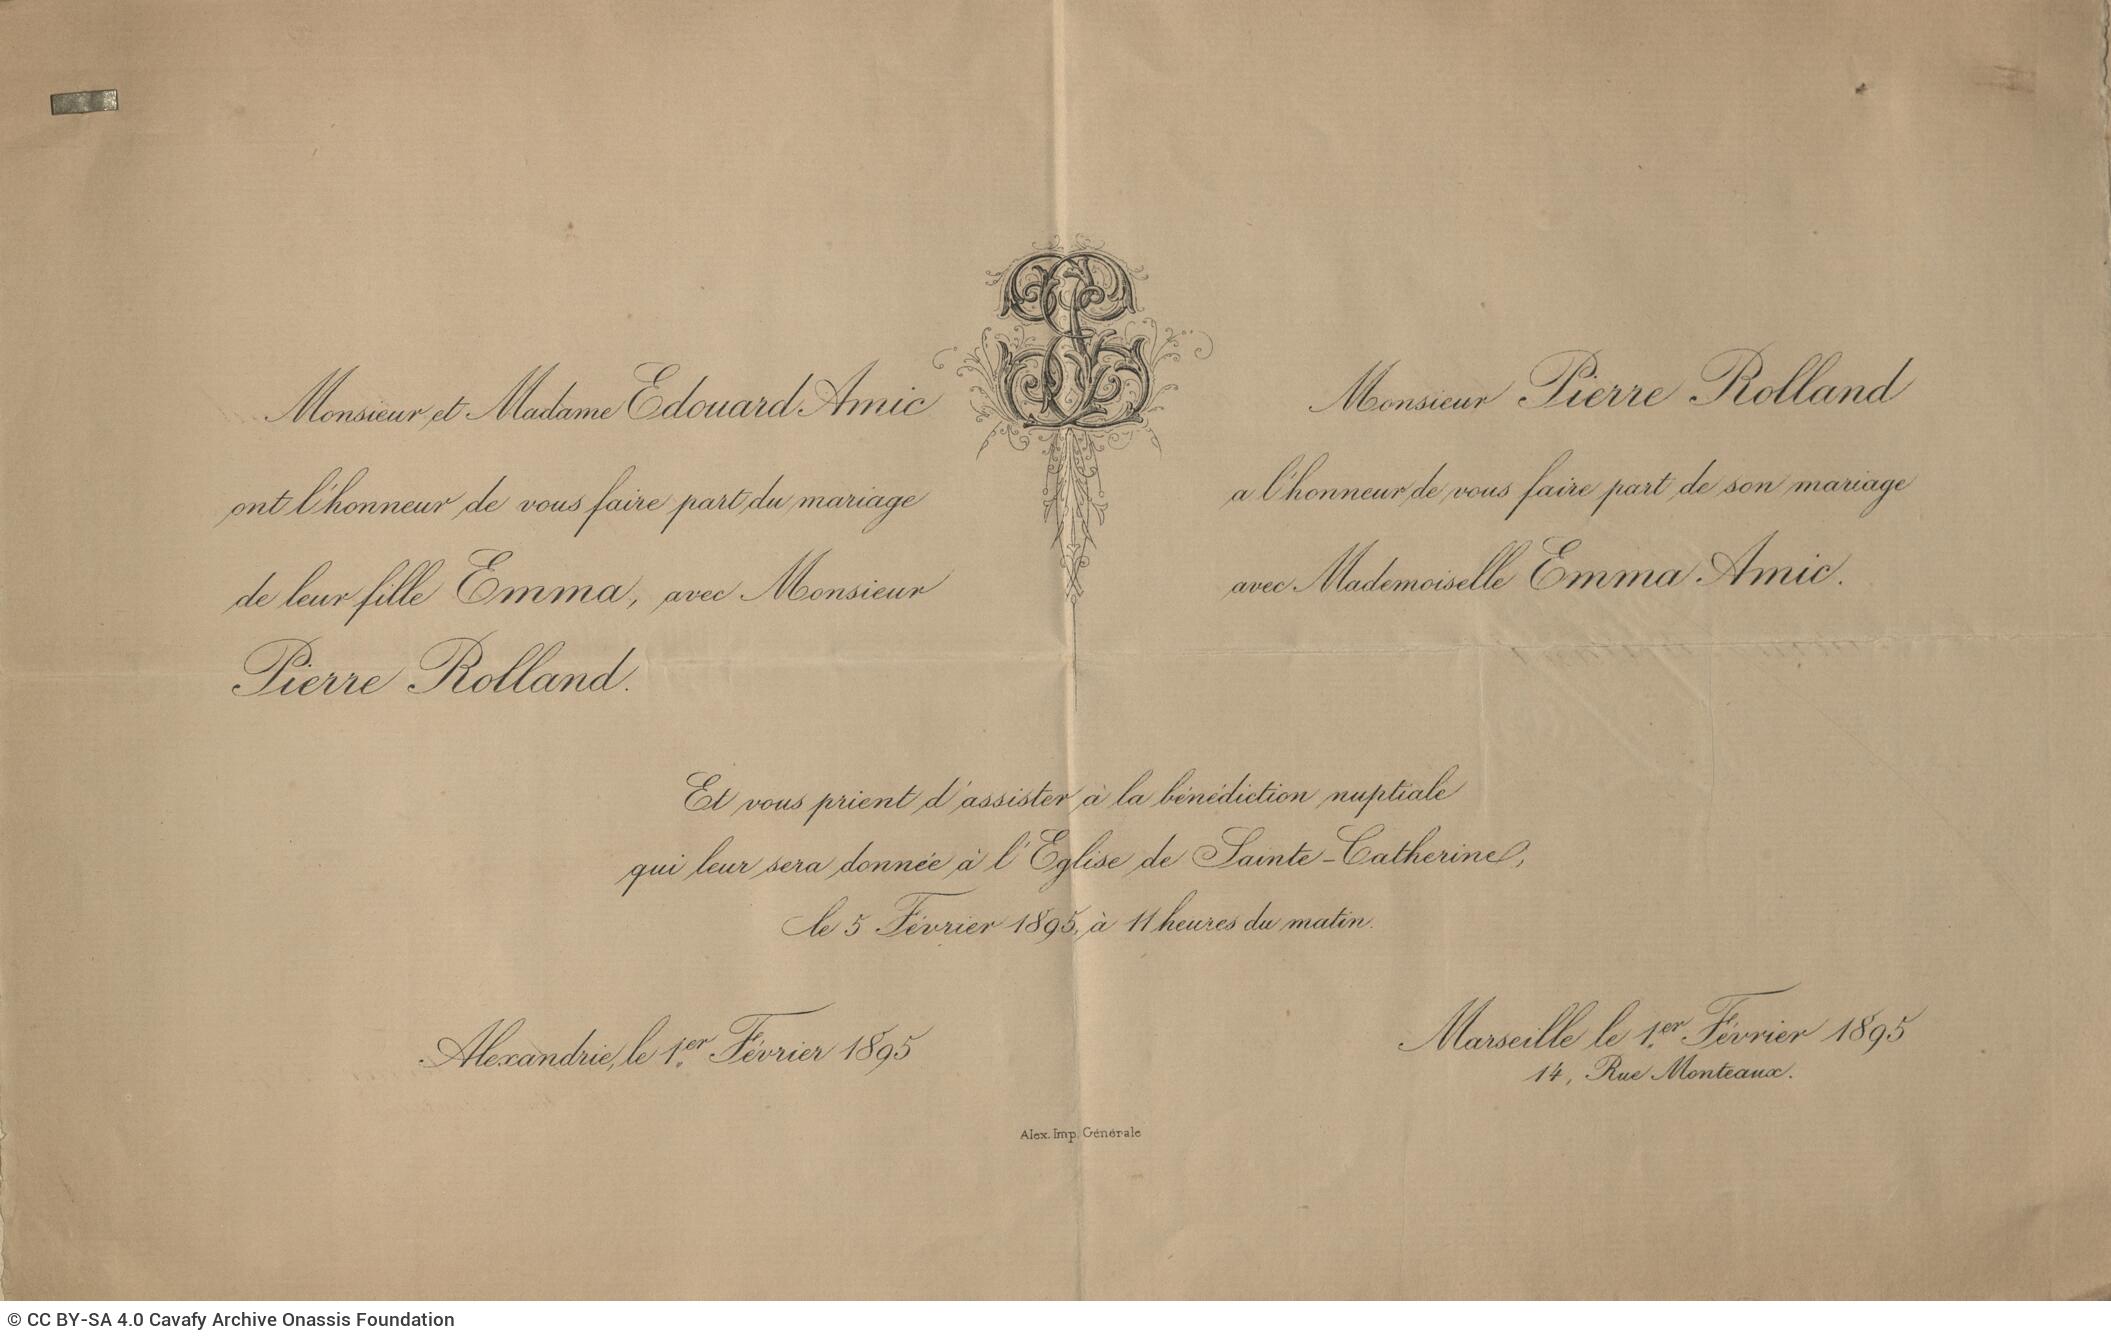 Monsieur et Madame Edouard Amic
ont l'honneur de vous faire part du mariage
de leur fille Emma, avec Monsieur
Pierre Rolland.
Monsieur Pierre Rolland
a l'honneur de vous faire part de son mariage
avec Mademoiselle Emma Amic.
Et vous prient d'assister à la bénédiction nuptiale
qui leur sera donnée à l'Eglise de Sainte-Catherine,
le 5 Février 1895, à 11 heures du matin.
Alexandrie, le 1er Février 1895
Marseille le 1er Février 1895
14, Rue Monteaux.
Alex. Imp. Générale
© CC BY-SA 4.0 Cavafy Archive Onassis Foundation